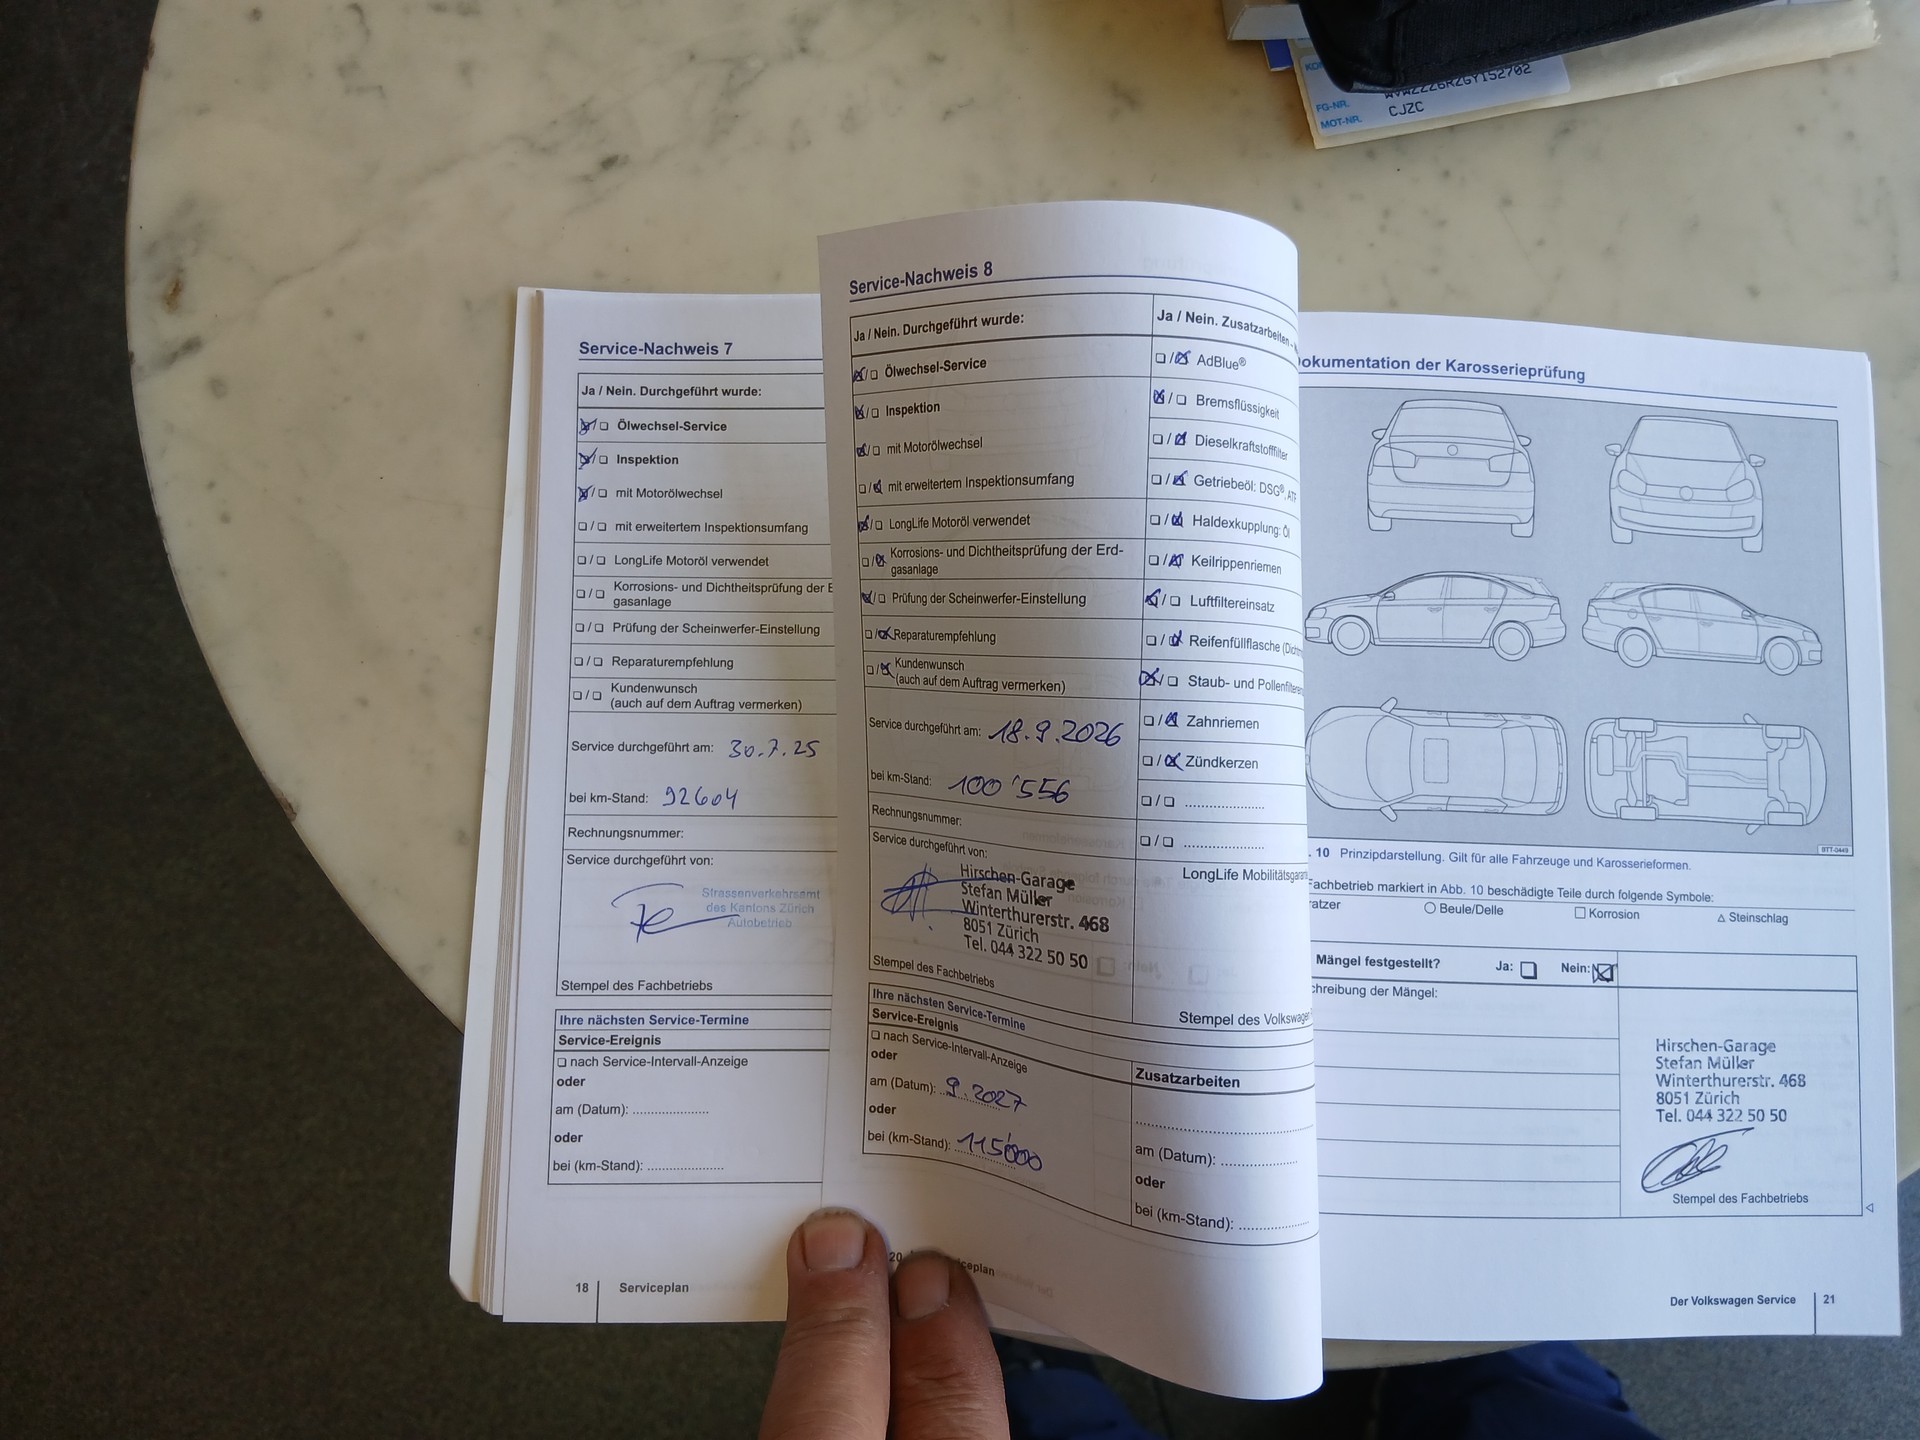 FG-NR.
MOT-NR. CJZC
Service-Nachweis 7
Ja / Nein. Durchgeführt wurde:
Ölwechsel-Service
Inspektion
mit Motorölwechsel
mit erweitertem Inspektionsumfang
LongLife Motoröl verwendet
Korrosions- und Dichtheitsprüfung der
gasanlage
Prüfung der Scheinwerfer-Einstellung
Reparaturempfehlung
Kundenwunsch
(auch auf dem Auftrag vermerken)
Service durchgeführt am: 30.7.25
bei km-Stand: 92604
Rechnungsnummer:
Service durchgeführt von:
Strassenverkehrsamt
des Kantons Zürich
Autobetrieb
Stempel des Fachbetriebs
Ihre nächsten Service-Termine
Service-Ereignis
nach Service-Intervall-Anzeige
oder
am (Datum): ....................
oder
bei (km-Stand): ....................
18 Serviceplan
Service-Nachweis 8
Ja / Nein. Durchgeführt wurde:
Ölwechsel-Service
Inspektion
mit Motorölwechsel
mit erweitertem Inspektionsumfang
LongLife Motoröl verwendet
Korrosions- und Dichtheitsprüfung der Erd-
gasanlage
Prüfung der Scheinwerfer-Einstellung
Reparaturempfehlung
Kundenwunsch
(auch auf dem Auftrag vermerken)
Service durchgeführt am: 18.9.2026
bei km-Stand: 100'556
Rechnungsnummer:
Service durchgeführt von:
Hirschen-Garage
Stefan Müller
Winterthurerstr. 468
8051 Zürich
Tel. 044 322 50 50
Stempel des Fachbetriebs
Ihre nächsten Service-Termine
Service-Ereignis
nach Service-Intervall-Anzeige
oder
am (Datum): 9.2027
oder
bei (km-Stand): 115'000
20
Ja / Nein. Zusatzarbeiten -
AdBlue®
Bremsflüssigkeit
Dieselkraftstofffilter
Getriebeöl: DSG®, ATF
Haldexkupplung: Öl
Keilrippenriemen
Luftfiltereinsatz
Reifenfüllflasche
Staub- und
Zahnriemen
Zündkerzen
....................
....................
LongLife
Stempel des
Zusatzarbeiten
....................
am (Datum): ....................
oder
bei (km-Stand): ....................
der Karosserieprüfung
BTT-0449
10 Prinzipdarstellung. Gilt für alle Fahrzeuge und Karosserieformen.
Fachbetrieb markiert in Abb. 10 beschädigte Teile durch folgende Symbole:
○ Beule/Delle □ Korrosion △ Steinschlag
Mängel festgestellt? Ja: Nein:
der Mängel:
Hirschen-Garage
Stefan Müller
Winterthurerstr. 468
8051 Zürich
Tel. 044 322 50 50
Stempel des Fachbetriebs
Der Volkswagen Service 21